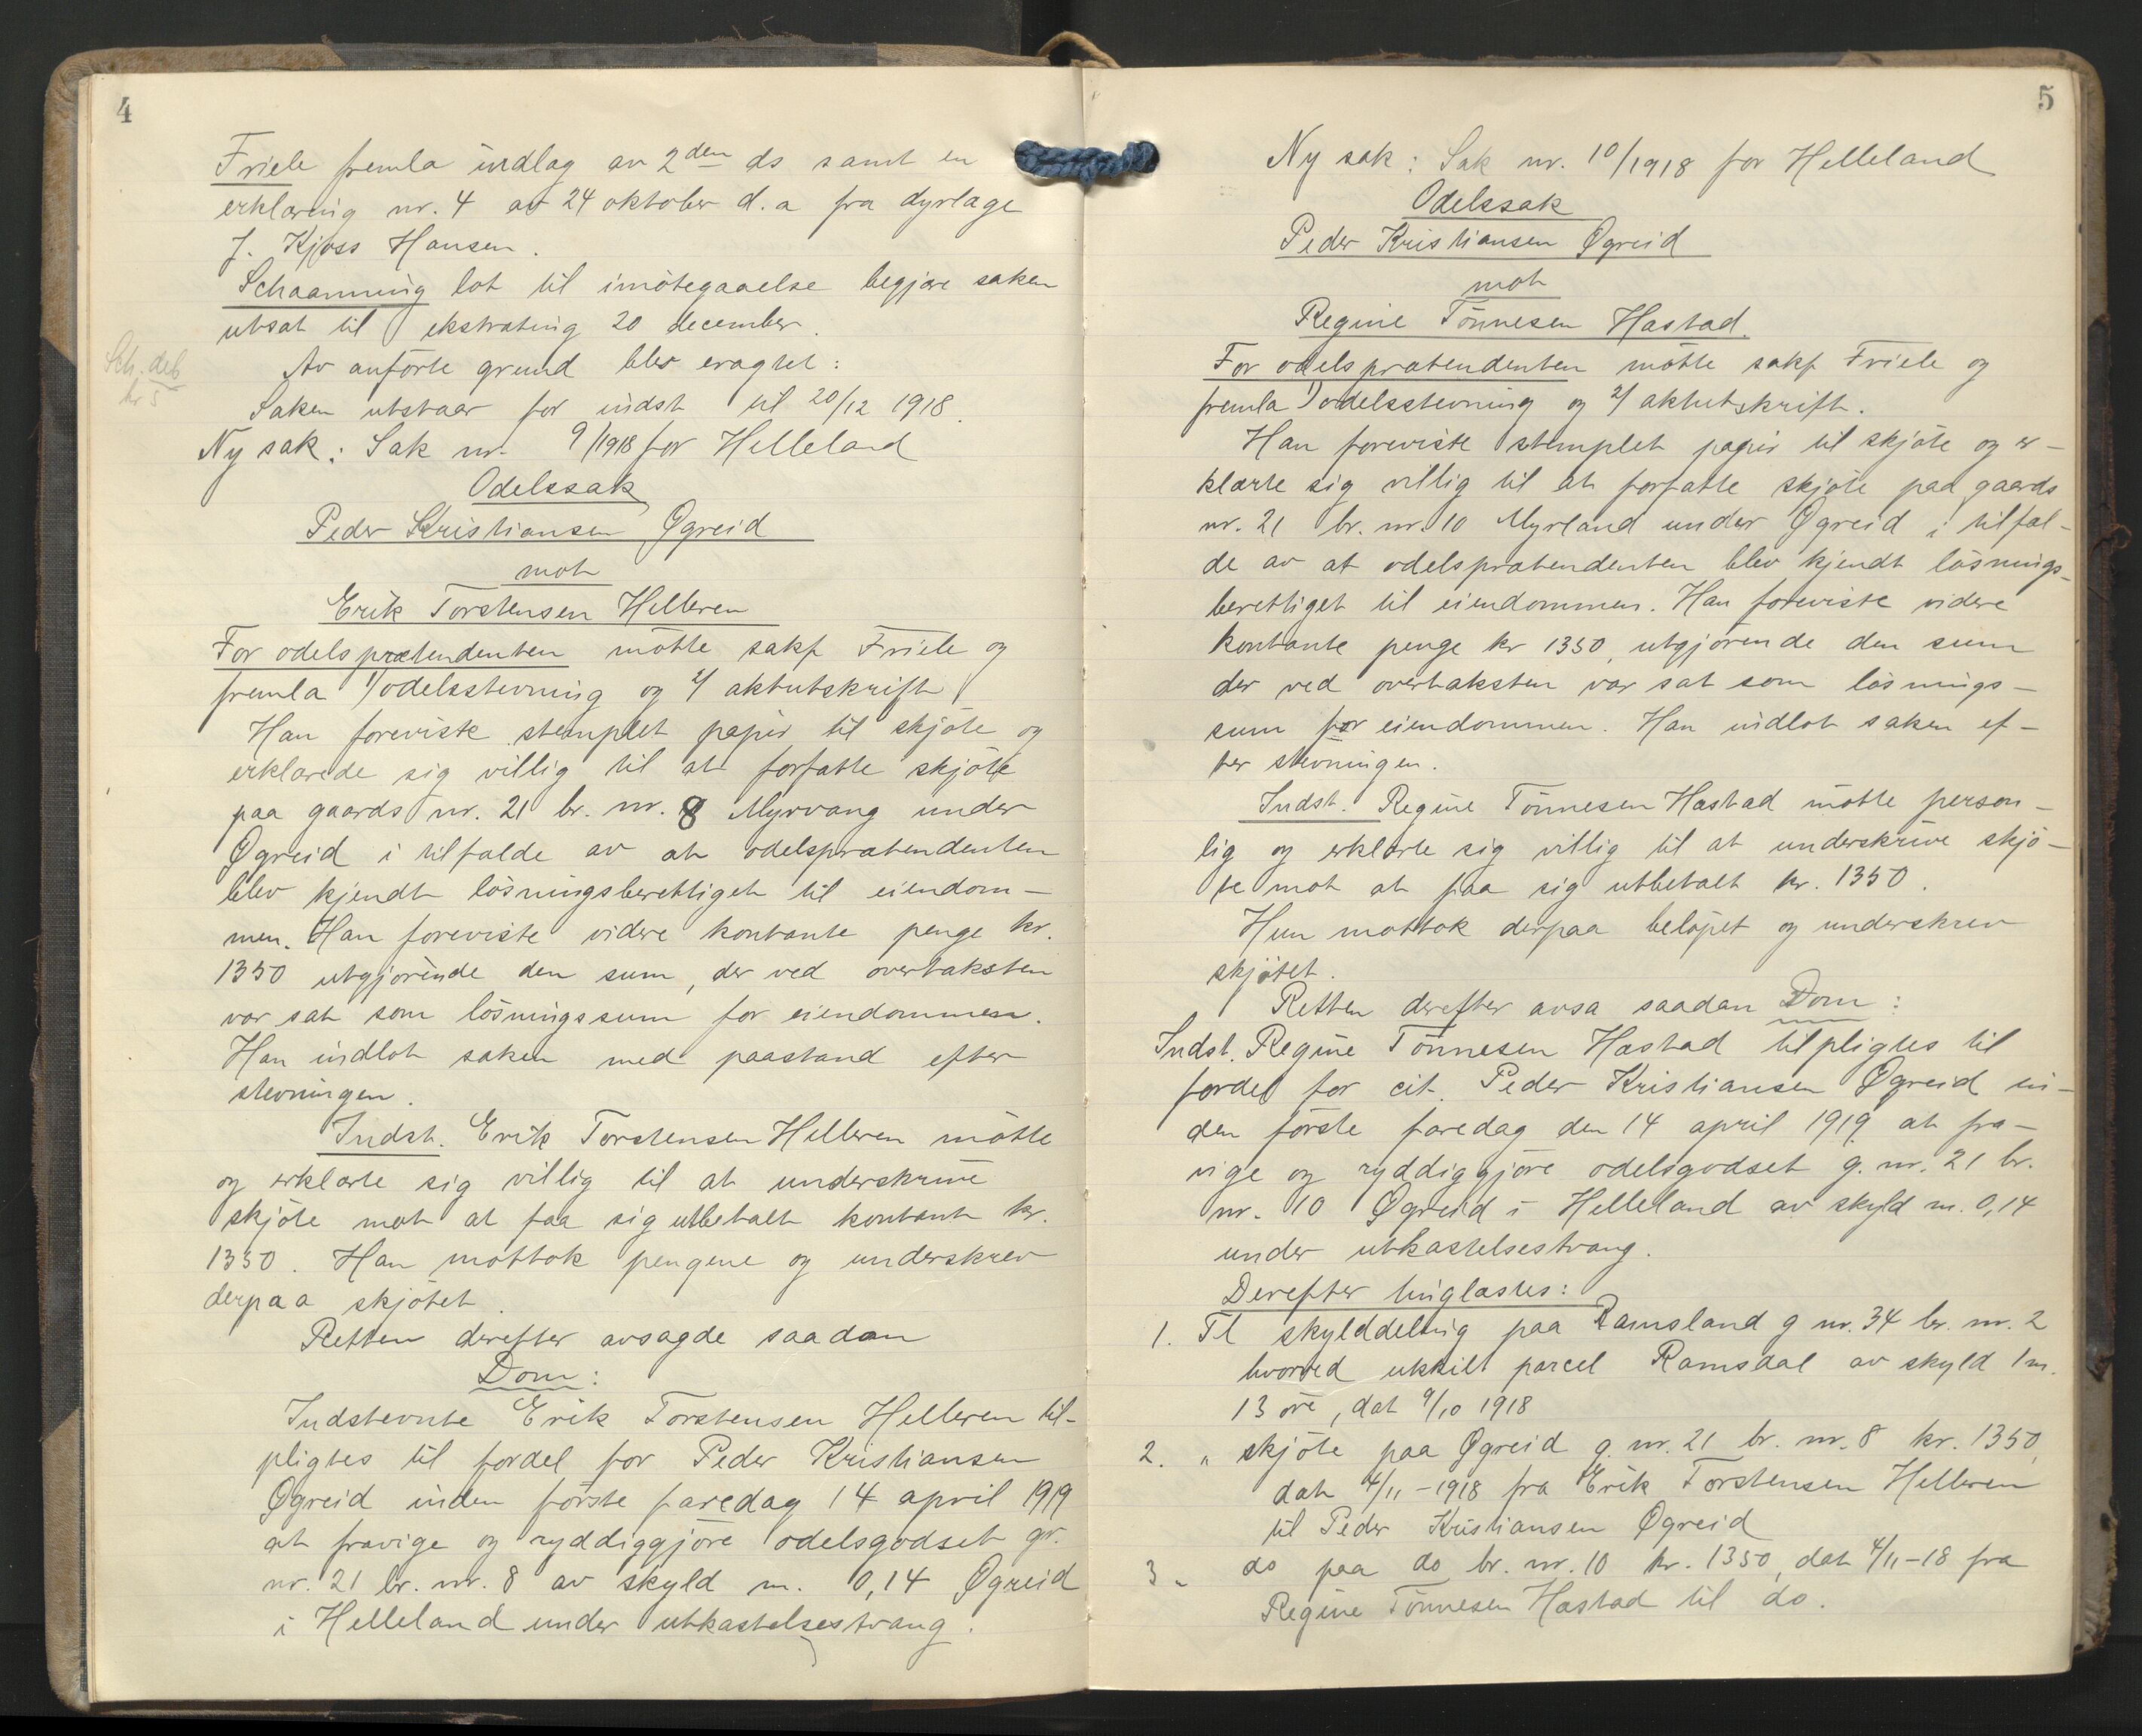 4
Friele fremla indlag av 2den ds samt en
erklæring nr. 4 av 24 oktober d.a fra dyrlæge
J. Kjoss Hansen.
Schaanning lot til imötegaaelse begjære saken
utsat til ekstrating 20 december.
Sch. deb
kr 5
Av anförte grund blev eragtet:
Saken utstaar for indst til 20/12 1918.
Ny sak: Sak nr. 9/1918 for Helleland
Odelssak
Peder Kristiansen Øgreid
mot
Erik Torstensen Helleren
For odelsprætendenten mötte sakf Friele og
fremla 1/ odelsstevning og 2/ aktutskrift
Han foreviste stemplet papir til skjöte og
erklærede sig villig til at forfatte skjöte
paa gaards nr. 21 br. nr. 8 Myrvang under
Øgreid i tilfælde av at odelsprætendenten
blev kjendt lösningsberettiget til eiendom-
men. Han foreviste videre kontante penge kr.
1350 utgjörende den sum, der ved overtaksten
var sat som lösningssum for eiendommen.
Han indlot saken med paastand efter
stevningen.
Indst. Erik Torstensen Helleren mötte
og erklærte sig villig til at underskrive
skjöte mot at faa sig utbetalt kontant kr.
1350. Han mottok pengene og underskrev
derpaa skjötet.
Retten derefter avsagde saadan
Dom:
Indstevnte Erik Torstensen Helleren til-
pligtes til fordel for Peder Kristiansen
Øgreid inden förste faredag 14 april 1919
at fravige og ryddiggjöre odelsgodset gr.
nr. 21 br. nr. 8 av skyld m. 0,14 Øgreid
i Helleland under utkastelsestvang.
5
Ny sak: Sak nr. 10/1918 for Helleland
Odelssak
Peder Kristiansen Øgreid
mot
Regine Tönnesen Hæstad.
For odelsprætendenten mötte sakf Friele og
fremla 1/ odelsstevning og 2/ aktutskrift.
Han foreviste stemplet papir til skjöte og er-
klærte sig villig til at forfatte skjöte paa gaards
nr. 21 br. nr. 10 Myrland under Øgreid i tilfæl-
de av at odelsprætendenten blev kjendt lösnings-
berettiget til eiendommen. Han foreviste videre
kontante penge kr 1350, utgjörende den sum
der ved overtaksten var sat som lösnings-
sum for eiendommen. Han indlot saken ef-
ter stevningen.
Indst. Regine Tönnesen Hæstad mötte person-
lig og erklærte sig villig til at underskrive skjö-
te mot at faa sig utbetalt kr. 1350.
Hun mottok derpaa belöpet og underskrev
skjötet.
Retten derefter avsa saadan Dom:
Indst. Regine Tönnesen Hæstad tilpligtes til
fordel for cit. Peder Kristiansen Øgreid in-
den förste faredag den 14 april 1919 at fra-
vige og ryddiggjöre odelsgodset g. nr. 21 br.
nr. 10 Øgreid i Helleland av skyld m. 0,14
under utkastelsestvang.
Derefter tinglæstes:
1. Tl skylddeling paa Ramsland g nr. 34 br. nr. 2
hvorved utskilt parcel Ramsdal av skyld 1 m.
13 öre, dat 9/10 1918
2. " skjöte paa Øgreid g. nr. 21 br. nr. 8 kr. 1350,
dat 4/11-1918 fra Erik Torstensen Helleren
til Peder Kristiansen Øgreid
3 " do paa do br. nr. 10 kr. 1350, dat 4/11-18 fra
Regine Tönnesen Hæstad til do.